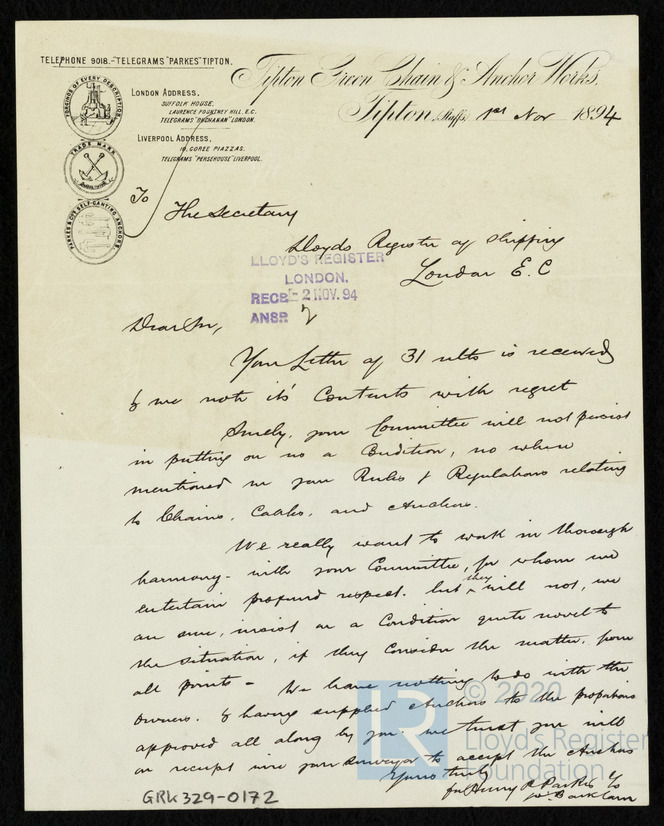 TELEPHONE 9018.-TELEGRAMS "PARKES" TIPTON.
Tipton Green Chain & Anchor Works,
Tipton, Staffs, 1st Nov 1894
FORGINGS OF EVERY DESCRIPTION
LONDON ADDRESS,
SUFFOLK HOUSE,
LAURENCE POUNTNEY HILL, E.C.
TELEGRAMS "BUCHANAN" LONDON.
LIVERPOOL ADDRESS,
19, GOREE PIAZZAS.
TELEGRAMS "PERSEHOUSE" LIVERPOOL.
TRADE MARK
PARKES & CO'S SELF-CANTING ANCHORS
To The Secretary
Lloyds Register of Shipping
London E.C
LLOYD'S REGISTER
LONDON.
RECD - 2 NOV. 94
ANSR
Dear Sir,
Your Letter of 31 ulto is received
& we note it's Contents with regret
Surely, your Committee will not persist
in putting on us a Condition, no where
mentioned in your Rules & Regulations relating
to Chains, Cables, and Anchors.
We really want to work in thorough
harmony - with your Committee, for whom we
entertain profound respect. but they will not, we
are sure, insist on a Condition quite novel to
the situation, if they Consider the matter, from
all points - We have nothing to do with the
owners. & having supplied Anchors to the proportions
approved all along by you. we trust you will
on receipt wire your Surveyor to accept the Anchors
Yours truly
for Henry P Parkes & Co
© 2020
LR
Lloyd's Register
Foundation
GRK329-0172